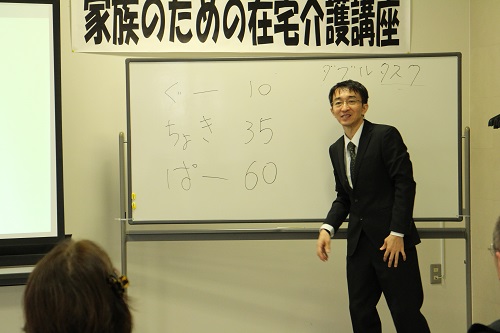 家族のための在宅介護講座
ダブルタスク
ぐー 10
ちょき 35
ぱー 60